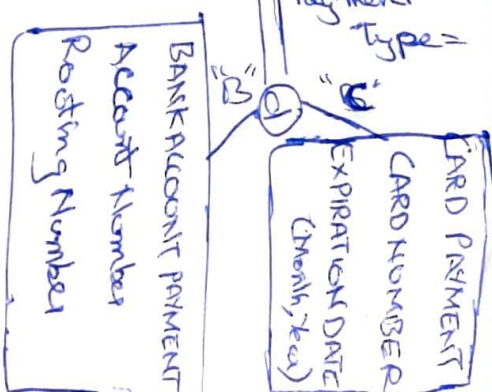 Payment
Type=
"B"
d
"C"
BANKACCOUNT PAYMENT
Account Number
Rooting Number
CARD PAYMENT
CARD NUMBER
EXPIRATION DATE
(Month, Year)